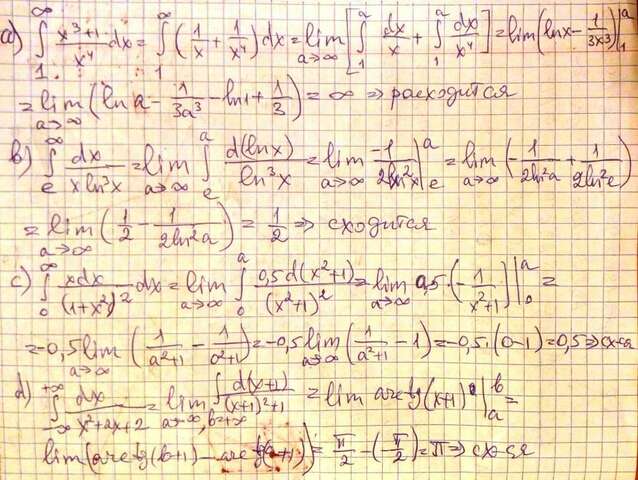 a) ∫₁^∞ (x³+1)/x⁴ dx = ∫₁^∞ (1/x + 1/x⁴) dx = lim_{a→∞} [∫₁^a dx/x + ∫₁^a dx/x⁴] = lim (ln x − 1/(3x³)) |₁^a
= lim_{a→∞} (ln a − 1/(3a³) − ln 1 + 1/3) = ∞ ⇒ расходится
b) ∫_e^∞ dx/(x ln³x) = lim_{a→∞} ∫_e^a d(ln x)/(ln³x) = lim_{a→∞} −1/(2ln²x) |_e^a = lim_{a→∞} (−1/(2ln²a) + 1/(2ln²e))
= lim_{a→∞} (1/2 − 1/(2ln²a)) = 1/2 ⇒ сходится
c) ∫₀^∞ xdx/(1+x²)² dx = lim_{a→∞} ∫₀^a 0,5d(x²+1)/(x²+1)² = lim_{a→∞} 0,5·(−1/(x²+1)) |₀^a =
= −0,5 lim_{a→∞} (1/(a²+1) − 1/(0²+1)) = −0,5 lim_{a→∞} (1/(a²+1) − 1) = −0,5·(0−1) = 0,5 ⇒ сх-ся
d) ∫_{−∞}^{+∞} dx/(x²+2x+2) = lim_{a→−∞, b→+∞} ∫ d(x+1)/((x+1)²+1) = lim arctg(x+1) |_a^b =
lim(arctg(b+1) − arctg(a+1)) = π/2 − (−π/2) = π ⇒ сх-ся